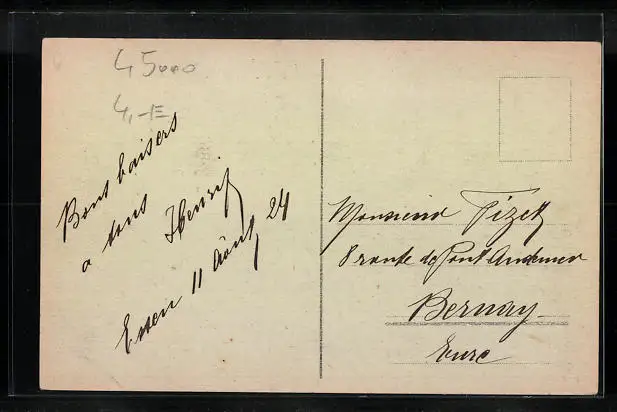 45000
4,-E
Bons baisers
a tous
Henri
Essen 11 Août 24
Monsieur Tizet
8 route de Pont Audemer
Bernay
Eure